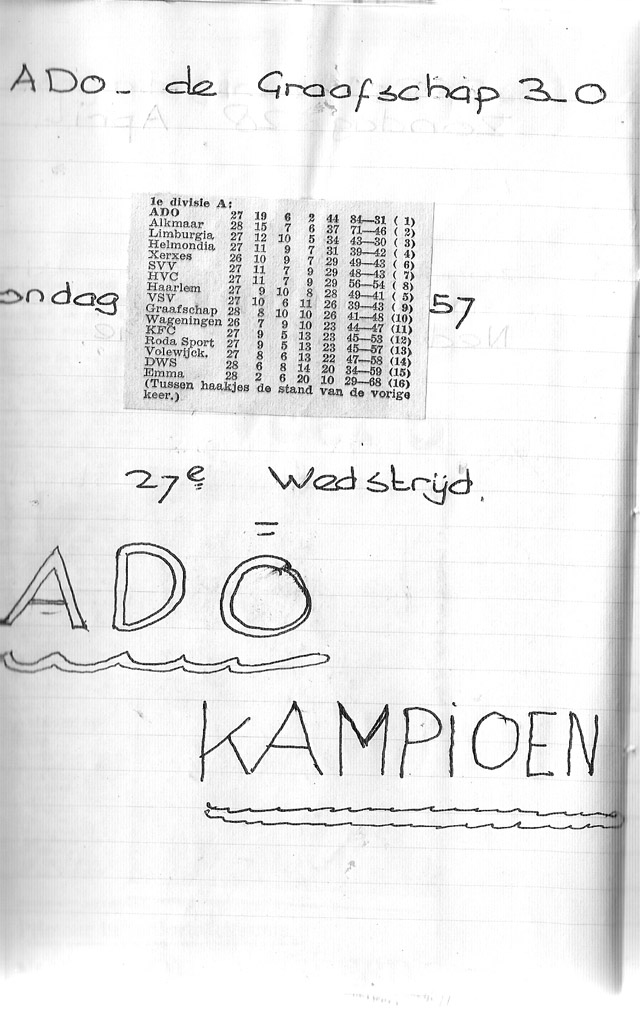 ADO - de Graafschap 3-0
1e divisie A:
ADO 27 19 6 2 44 84—31 ( 1)
Alkmaar 28 15 7 6 37 71—46 ( 2)
Limburgia 27 12 10 5 34 43—30 ( 3)
Helmondia 27 11 9 7 31 39—42 ( 4)
Xerxes 26 10 9 7 29 49—43 ( 6)
SVV 27 11 7 9 29 48—43 ( 7)
HVC 27 11 7 9 29 56—54 ( 8)
Haarlem 27 9 10 8 28 49—41 ( 5)
VSV 27 10 6 11 26 39—43 ( 9)
Graafschap 28 8 10 10 26 41—48 (10)
Wageningen 26 7 9 10 23 44—47 (11)
KFC 27 9 5 13 23 45—53 (12)
Roda Sport 27 9 5 13 23 45—57 (13)
Volewijck. 27 8 6 13 22 47—58 (14)
DWS 28 6 8 14 20 34—59 (15)
Emma 28 2 6 20 10 29—68 (16)
(Tussen haakjes de stand van de vorige
keer.)
ondag 57
27e Wedstrijd.
ADO
KAMPiOEN